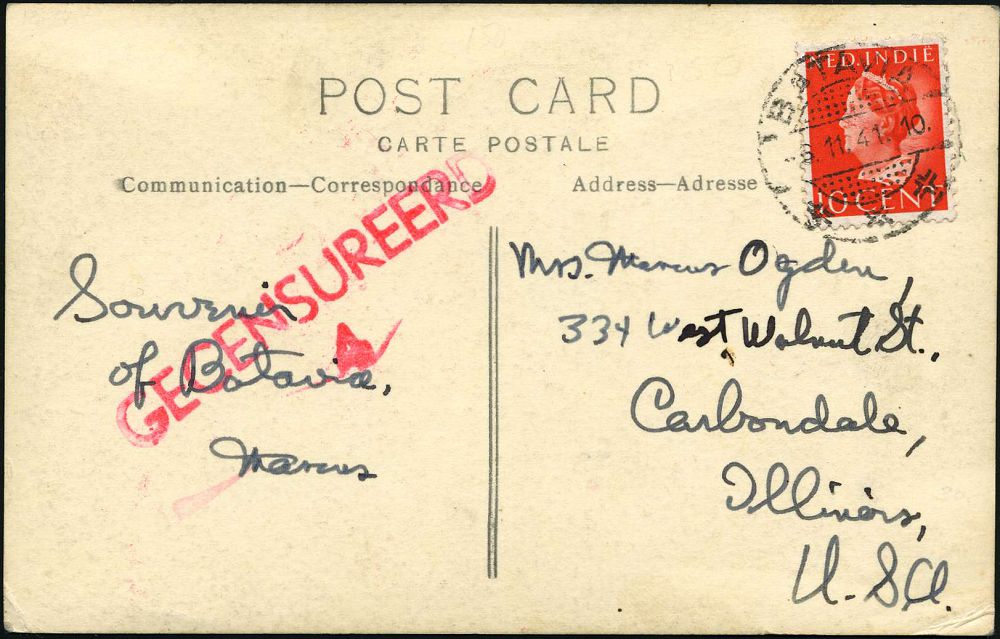 POST CARD
CARTE POSTALE
Communication—Correspondance
Address—Adresse
NED. INDIË
10 CENT
BATAVIA
8.11.41.10.
GECENSUREERD
4
Souvenir
of Batavia,
Marcus
Mrs. Marcus Ogden,
334 West Walnut St.,
Carbondale,
Illinois,
U.S.A.